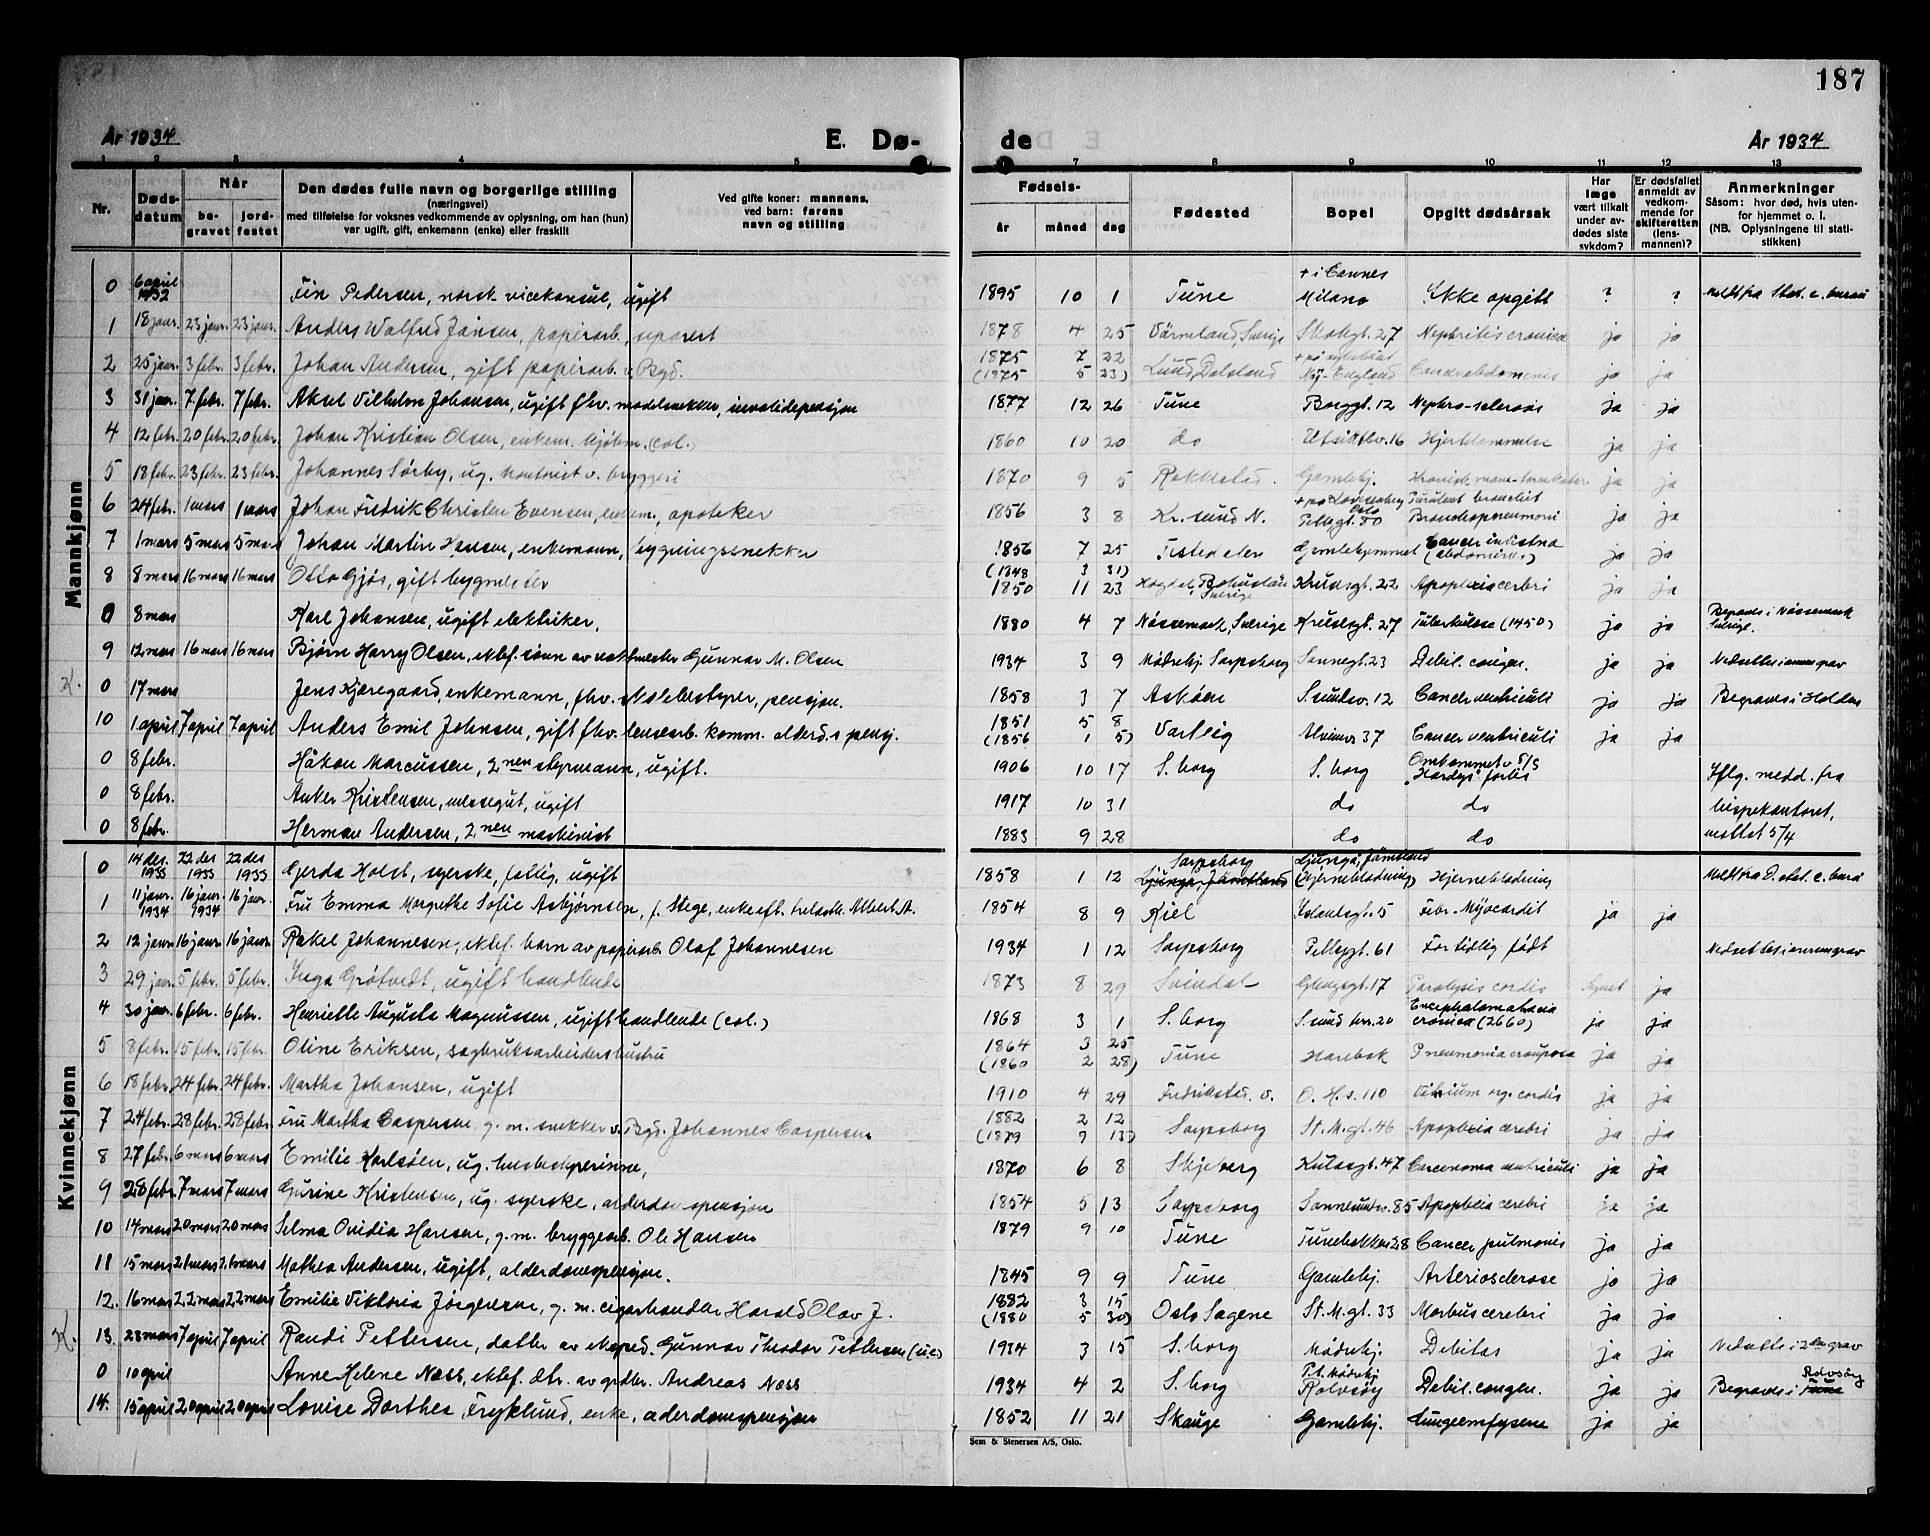 187
År 1934 E. Dø- de År 1934
1 2 3 4 5 7 8 9 10 11 12 13
Nr. Døds-datum Når be-gravet jord-festet
Den dødes fulle navn og borgerlige stilling
(næringsvei)
med tilføielse for voksnes vedkommende av oplysning, om han (hun)
var ugift, gift, enkemann (enke) eller fraskilt
Ved gifte koner: mannens,
ved barn: farens
navn og stilling
Fødsels- år måned dag
Fødested
Bopel
Opgitt dødsårsak
Har læge vært tilkalt under av-dødes siste sykdom?
Er dødsfallet anmeldt av vedkom-mende for skifteretten (lens-mannen)?
Anmerkninger
Såsom: hvor død, hvis uten-for hjemmet o. l.
(NB. Oplysningene til stati-stikken)
Mannkjønn
0 6 april 1932 Fin Pedersen, norsk vicekonsul, ugift 1895 10 1 Tune + i Cannes Milano Ikke opgitt ? ? Meldt fra Stat. c. burau
1 18 janr. 23 janr. 23 janr. Anders Walfred Jansen, papirarb., separert 1878 4 25 Värmland, Sverige Skogt. 27 Nephritis cronica ja ja
2 25 janr. 3 febr. 3 febr. Johan Andersen, gift papirarb. v. Bgd. 1875 7 22 (1875 5 23) Lund, Dalsland Ny-England Cancr. abdomenis ja ja
3 31 janr. 7 febr. 7 febr. Aksel Vilhelm Johansen, ugift fhv. modelsnekker, invalidepensjon 1877 12 26 Tune Borggt. 12 Nephro-sclerosis ja ja
4 12 febr. 20 febr. 20 febr. Johan Kristian Olsen, enkem. kjøbm. (col.) 1860 10 20 do Utsiktsv. 16 Hjertelammelse ja ja
5 18 febr. 23 febr. 23 febr. Johannes Sørby, ug. kontorist v. bryggeri 1870 9 5 Rakkestad Gamlehj. ja ja
6 24 febr. 1 mars 1 mars Johan Fredrik Christen Evensen, enkem., apoteker 1856 3 8 Kr.sund N. + på Lovisenberg Oslo Pellegt. 80 Purulent bronchit Bronchopneumoni ja ja
7 1 mars 5 mars 5 mars Johan Martin Hansen, enkemann, bygningssnekker 1856 7 25 Tistedalen Gamlehjemmet Cancer intestina (abdominis) ja ja
8 8 mars 16 mars 16 mars Otto Gjøs, gift bygmester (1848 3 31) 1850 11 23 Høgdal, Bohuslän Sverige Kruसgt. 22 Apoplexia cerebri ja ja
0 8 mars Karl Johansen, ugift elektriker, 1880 4 7 Nössemark, Sverige 27 Tuberkulose (1450) ja ja Begraves i Nössemark Sverige.
9 12 mars 16 mars 16 mars Bjørn Harry Olsen, ektef. sønn av vaktmester Gunnar M. Olsen 1934 3 9 Mødrehj. Sarpsborg Sannegt. 23 Debil. congen. ja ja Nedsettes i annen grav
K. 0 17 mars Jens Kjæregaard, enkemann, fhv. skolebestyrer, pensjon. 1858 3 7 Askøen S.sundsv. 12 Cancer ventriculi ja ja Begraves i Holden
10 1 april 7 april 7 april Anders Emil Johnsen, gift fhv. lensearb. komm. alderd.s pensj. 1851 5 8 (1856 1 5) Varteig Alvimv. 37 Cancer ventriculi ja ja
0 8 febr. Håkon Marcussen, 2nen styrmann, ugift. 1906 10 17 S.borg S.borg Omkommet v. S/S "Hardys" forlis Iflg. medd. fra
0 8 febr. Anker Kristensen, messegut, ugift 1917 10 31 do do bispekontoret,
0 8 febr. Herman Andersen, 2nen maskinist 1883 9 28 do do mottat 5/4
Kvinnekjønn
0 14 des. 1933 22 des 1933 22 des 1933 Gerda Holst, syerske, fattig, ugift 1858 1 12 Sarpsborg Ljunga, Jämtland Ljunga, Jämtland (Hjerneblødning) Hjerneblødning Meldt fra D. stat. c. burå
1 11 janr. 1934 16 janr. 1934 16 janr. Fru Emma Margrethe Sofie Asbjørnsen, f. Stege, enke eft. trelasth. Albert A. 1854 8 9 Kiel 15 Febr. Myocardit ja ja
2 12 janr. 16 janr. 16 janr. Rakel Johannesen, ektef. barn av papirarb. Olaf Johannesen 1934 1 12 Sarpsborg Pellegt. 61 For tidlig født Nedsettes i annen grav
3 29 janr. 5 febr. 5 febr. Inga Grøtvedt, ugift handlende 1873 8 29 Svindal Glengsgt. 17 Paralysis cordis Synet ja
4 30 janr. 6 febr. 6 febr. Henriette Augusta Magnussen, ugift handlende (col.) 1868 3 1 S.borg S.sund 20 Encephalomalacia cronica (2660) ja ja
5 8 febr. 15 febr. 15 febr. Oline Eriksen, sagbruksarbeiders hustru 1864 3 25 (1860 2 28) Tune Harebak Pneumonia crouposa ja ja
6 18 febr. 24 febr. 24 febr. Martha Johansen, ugift 1910 4 29 Fredrikstad v. O. H. s. 110 Vitium org. cordis ja ja
7 24 febr. 28 febr. 28 febr. Fru Martha Caspersen, g. m. snekker v. Bgd. Johannes Caspersen 1882 2 12 (1879 9 13) Sarpsborg St.M.gt. 46 Apoplexia cerebri ja ja
8 27 febr. 6 mars 6 mars Emilie Karlsøen, ug. husbestyrerinne, 1870 6 8 Skjeberg Kulåsgt. 47 Carcinoma ventriculi ja ja
9 28 febr. 7 mars 7 mars Gurine Kristensen, ug. syerske, alderdomspensjon 1854 5 13 Sarpsborg Sannesundsv. 85 Apoplexia cerebri ja ja
10 14 mars 20 mars 20 mars Selma Ovidia Hansen, g.m. bryggearb. Ole Hansen 1879 9 10 Tune Tunebakken 28 Cancer pulmonis ja ja
11 15 mars 21 mars 21 mars Mathea Andersen, ugift, alderdomspensjon. 1845 9 9 Tune Gamlehj. Arteriosclerose ja ja
12. 16 mars 22 mars 22 mars Emilie Viktoria Jørgensen, g. m. cigarhandler Harald Olav J. 1882 3 15 (1880 5 30) Oslo Sagene St.M.gt. 33 Morbus cerebri ja ja
K. 13. 23 mars 7 april 7 april Randi Pettersen, datter av eksped. Gunnar Theodor Pettersen (u.e.) 1934 3 15 S.borg Mødrehj. Debilitas ja ja Nedsettes i 2den grav
0 10 april Anne Helene Næss, ektef. dtr. av grdbr. Andreas Næss 1934 4 2 S.borg P.t. Mødrehj Rolvsøy Debil. congen. ja ja Begraves i Tune Rolvsøy
14. 15 april 20 april 20 april Lovise Dorthea Fryklund, enke, alderdomspensjon 1852 11 21 Skauge Gamlehj. Lungeemfysene ja ja
Sem & Stenersen A/S, Oslo.